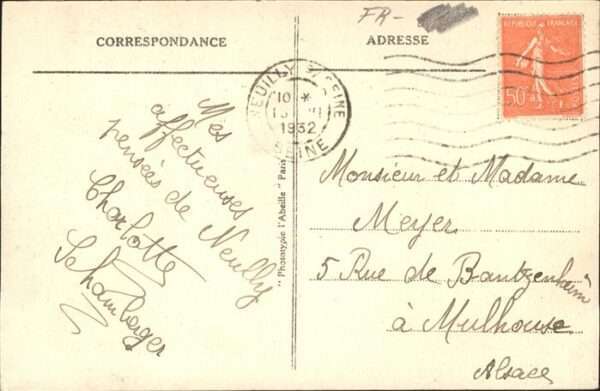 FR-
CORRESPONDANCE
ADRESSE
REPUBLIQUE FRANÇAISE
50c
NEUILLY S/ SEINE
10 *
1932
SEINE
Mes
affectueuses
pensées de Neuilly
Charlotte
Schamberger
" Phototypie l'Abeille " Paris
Monsieur et Madame
Meyer
5 Rue de Bantzenheim
à Mulhouse
Alsace